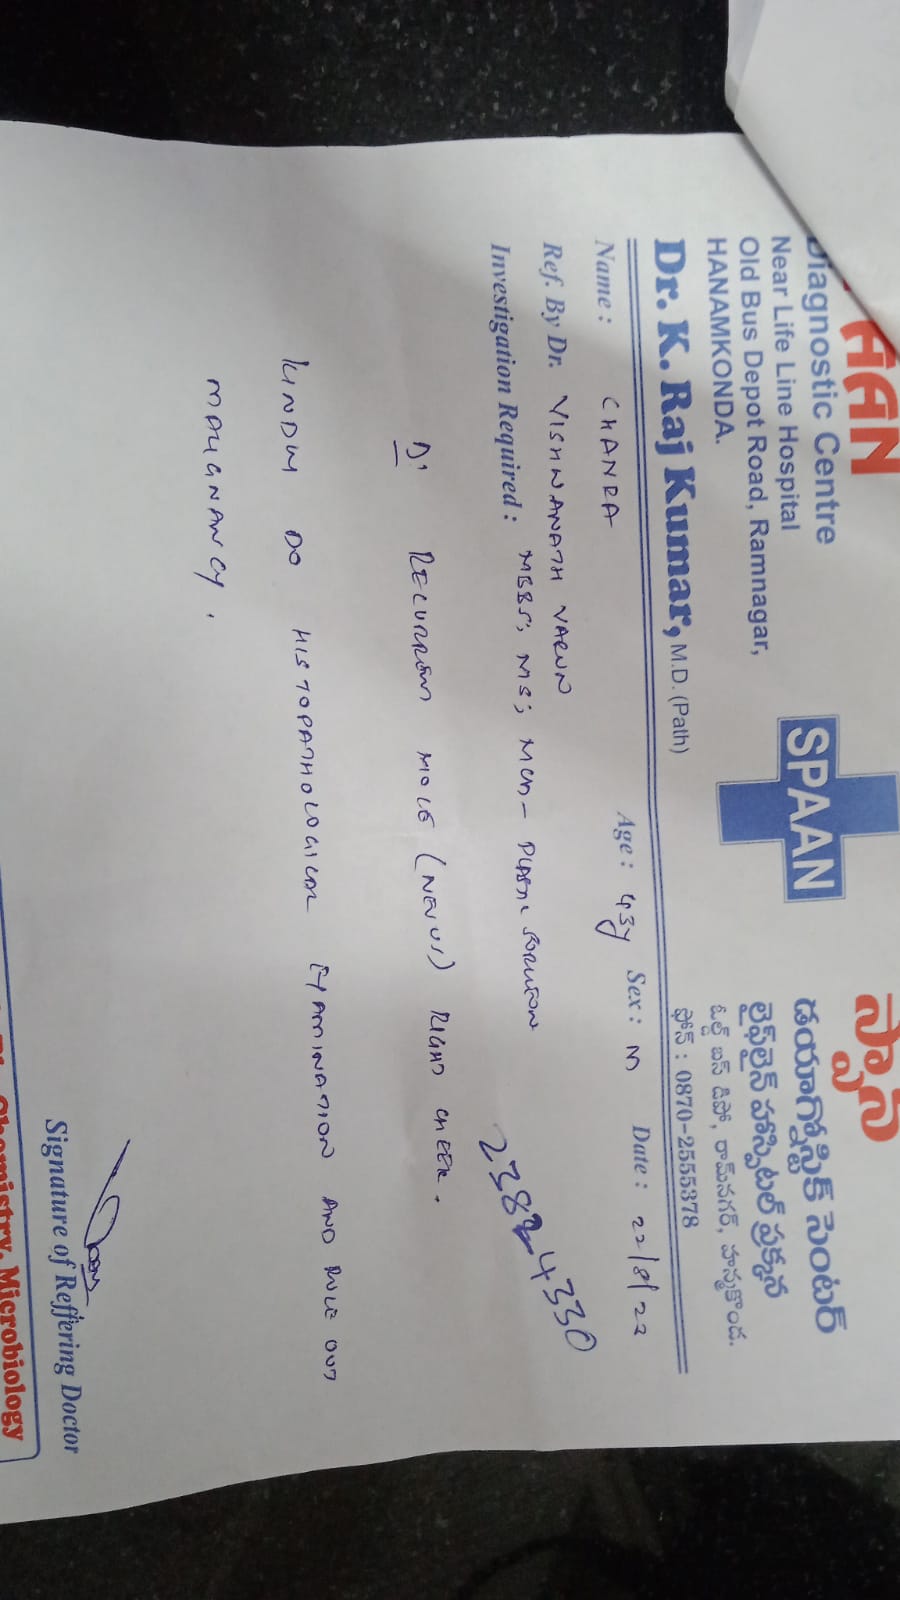 Diagnostic Centre
Near Life Line Hospital
Old Bus Depot Road, Ramnagar,
HANAMKONDA.
SPAAN
స్పాన్
డయాగ్నోస్టిక్ సెంటర్
లైఫ్‌లైన్ హాస్పిటల్ ప్రక్కన
ఓల్డ్ బస్ డిపో, రామ్‌నగర్, హన్మకొండ.
ఫోన్ : 0870-2555378
Dr. K. Raj Kumar, M.D. (Path)
Name : CHANRA Age : 43y Sex : M Date : 22/8/22
Ref. By Dr. VISHWANATH VARUN
Investigation Required : MBBS; MS; MCh - PLASTIC SURGEON
4330
D: RECURRENT MOLE (NEVUS) RIGHT CHEEK.
KINDLY DO HISTOPATHOLOGICAL EXAMINATION AND RULE OUT
MALIGNANCY.
Signature of Reffering Doctor
Chemistry, Microbiology